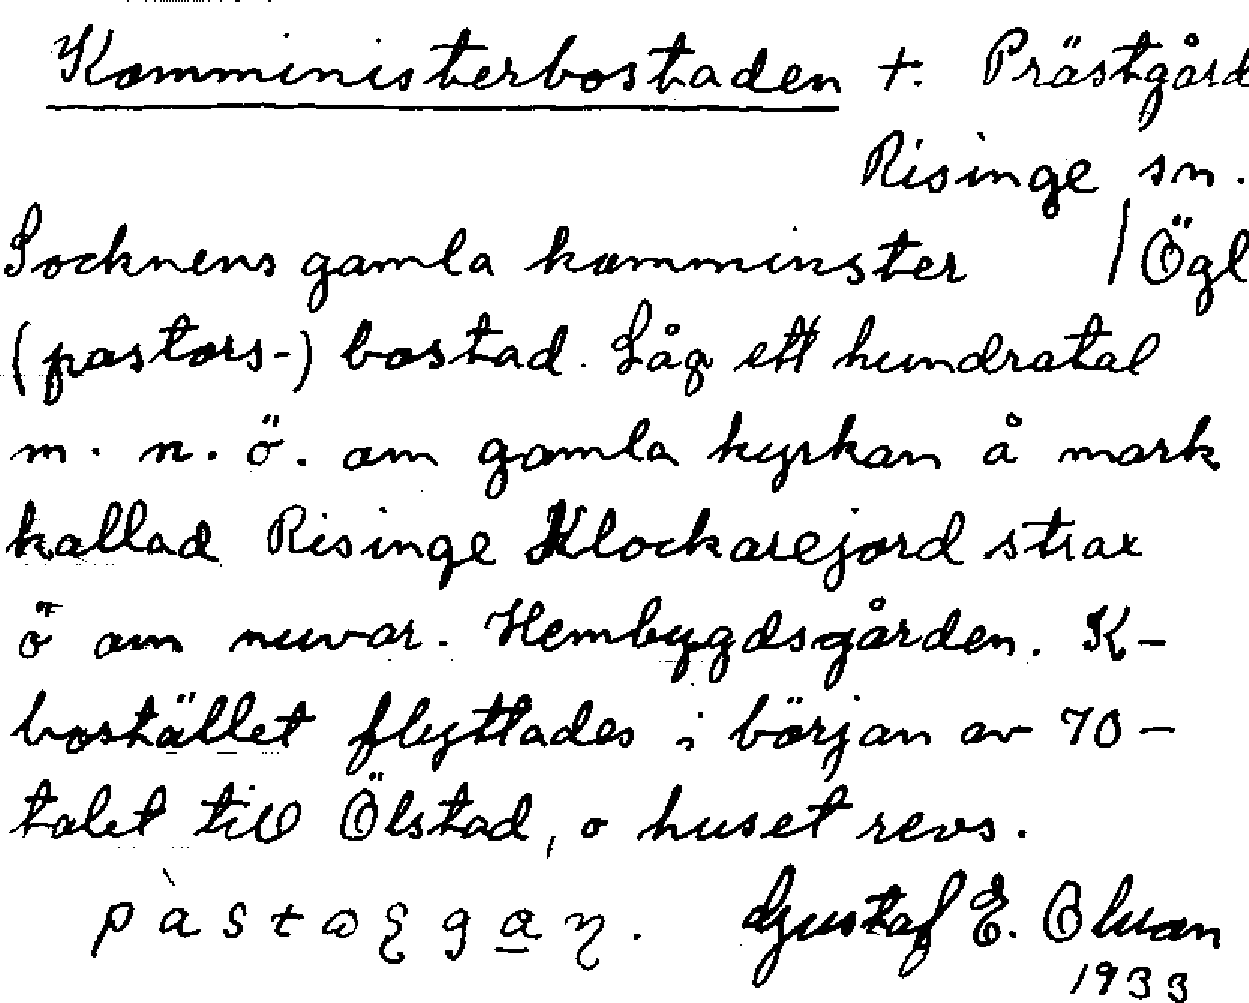 Komministerbostaden +. Prästgård
Risinge sn.
Socknens gamla komminster /Ögl
(pastors-) bostad. Låg ett hundratal
m. n. ö. om gamla kyrkan å mark
kallad Risinge Klockarejord strax
ö om nuvar. Hembygdsgården. K-
bostället flyttades i början av 70-
talet till Ölstad, o huset revs.
Gustaf E.
1933